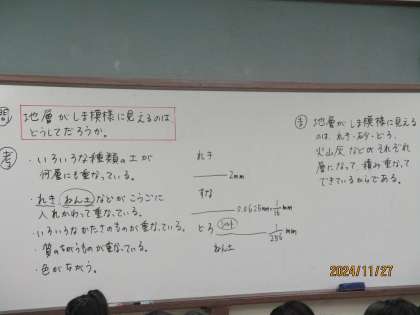 問 地層がしま模様に見えるのは
どうしてだろうか。
考 ・いろいろな種類の土が
何層にも重なっている。
・れき ねん土 などがこうごに
入れかわって重なっている。
・いろいろなかたさのものが重なっている。
・質のちがうものが重なっている。
・色がちがう。
れき
2mm
すな
0.0625mm 1/16 mm
どろ シルト
1/256 mm
ねん土
ま 地層がしま模様に見える
のは、れき・砂・どろ、
火山灰などのそれぞれ
層になって、積み重なって
できているからである。
2024/11/27